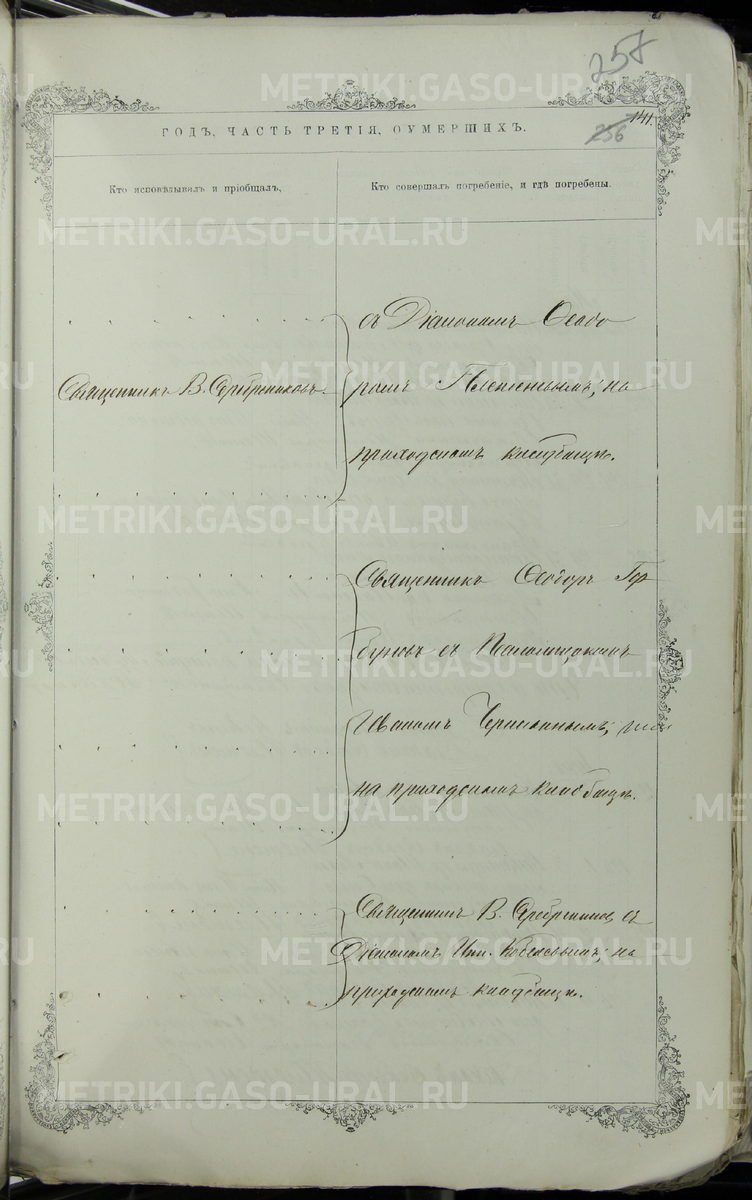 257
141.
256
ГОДЪ, ЧАСТЬ ТРЕТІЯ, О УМЕРШИХЪ.
Кто исповѣдывалъ и пріобщалъ,
Кто совершалъ погребеніе, и гдѣ погребены.
съ Діакономъ Ѳеодо
Священникъ В. Серебренниковъ.
ромъ Плетеневымъ; на
приходскомъ кладбищѣ.
Священникъ Ѳеодоръ Гор
буновъ съ Псаломщикомъ
Иваномъ
на приходскомъ кладбищѣ.
Священникъ В. Серебренниковъ съ
Діакономъ на
приходскомъ кладбищѣ.
METRIKI.GASO-URAL.RU